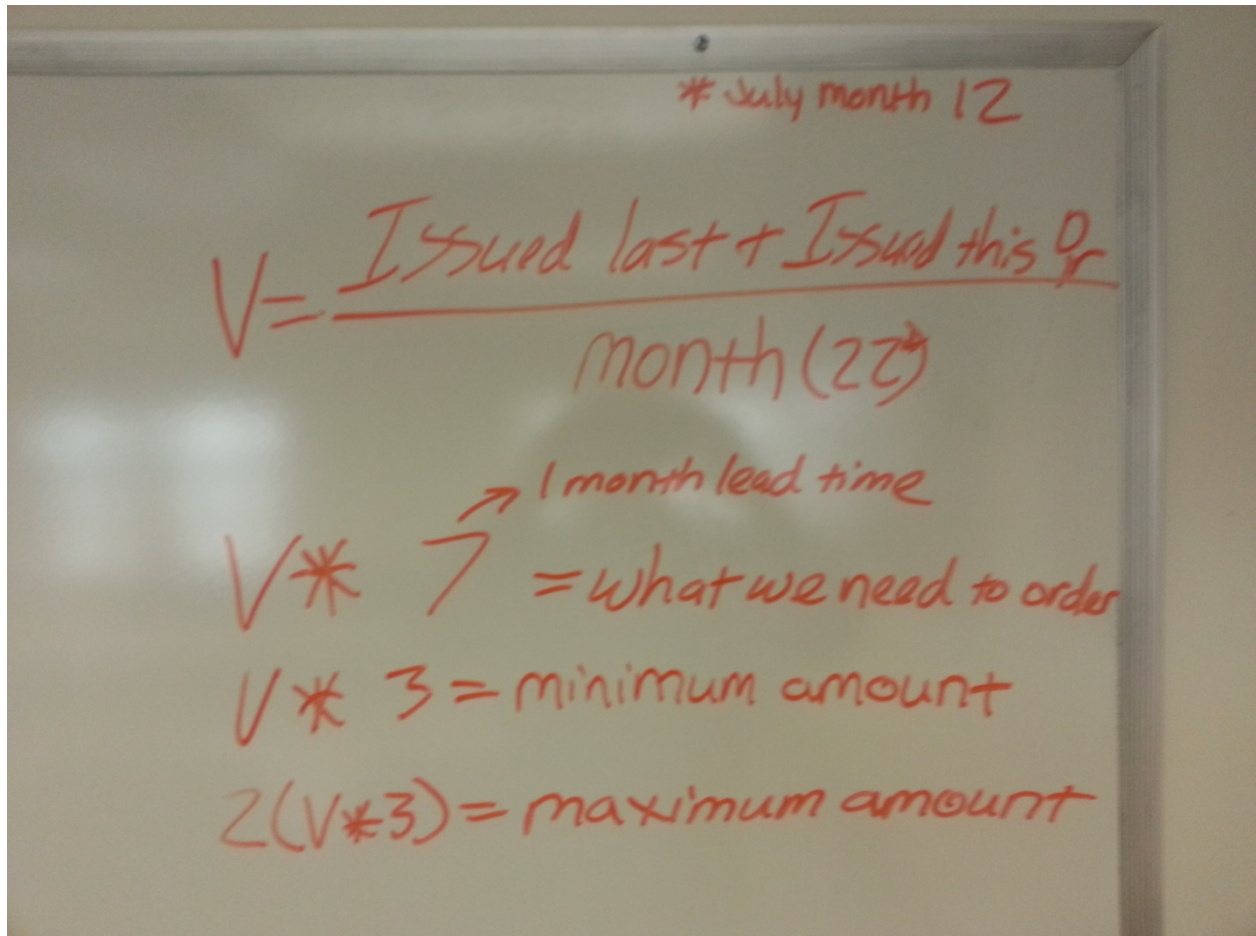 * July month 12
V= Issued last + Issued this Yr
month (22*)
→ 1 month lead time
V* 7 = what we need to order
V* 3 = minimum amount
2(V*3) = maximum amount